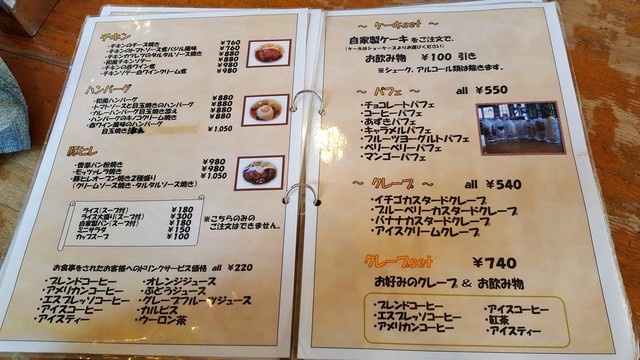 チキン
・チキンのチーズ焼き ￥760
・チキンのトマトソース煮バジル風味 ￥760
・チキンカツレツのタルタルソース焼き ￥880
・和風チキンソテー ￥880
・チキンの白ワイン煮 ￥980
・チキンソテー白ワインクリーム煮 ￥980
ハンバーグ
・和風ハンバーグ ￥880
・トマトソースと目玉焼きのハンバーグ ￥880
・カレーハンバーグ目玉焼き添え ￥880
・ハンバーグのキノコクリーム焼き ￥880
・赤ワイン風味のハンバーグ
目玉焼き添え ￥1.050
豚ヒレ
・香草パン粉焼き ￥980
・モッツァレラ焼き ￥980
・豚ヒレオーブン焼き2種盛り ￥1.050
（クリームソース焼き・タルタルソース焼き）
ライス(スープ付) ￥180
ライス大盛り(スープ付) ￥300
自家製パン(スープ付) ￥180
ミニサラダ ￥150
カップスープ ￥100
※こちらのみの
ご注文はできません。
お食事をされたお客様へのドリンクサービス価格 all ￥220
・ブレンドコーヒー
・アメリカンコーヒー
・エスプレッソコーヒー
・アイスコーヒー
・アイスティー
・オレンジジュース
・ぶどうジュース
・グレープフルーツジュース
・カルピス
・ウーロン茶
～ ケーキset ～
自家製ケーキ をご注文で、
(ケーキはショーケースよりお選びください)
お飲み物 ￥100 引き
※シェーク、アルコール類は除きます。
～ パフェ ～ all ￥550
・チョコレートパフェ
・コーヒーパフェ
・あずきパフェ
・キャラメルパフェ
・フルーツヨーグルトパフェ
・ベリーベリーパフェ
・マンゴーパフェ
～ クレープ ～ all ￥540
・イチゴカスタードクレープ
・ブルーベリーカスタードクレープ
・バナナカスタードクレープ
・アイスクリームクレープ
クレープset ￥740
お好みのクレープ & お飲み物
・ブレンドコーヒー
・エスプレッソコーヒー
・アメリカンコーヒー
・アイスコーヒー
・紅茶
・アイスティー